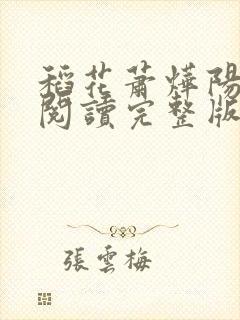 稻花蕭燁陽
閱讀完整版
張雲梅